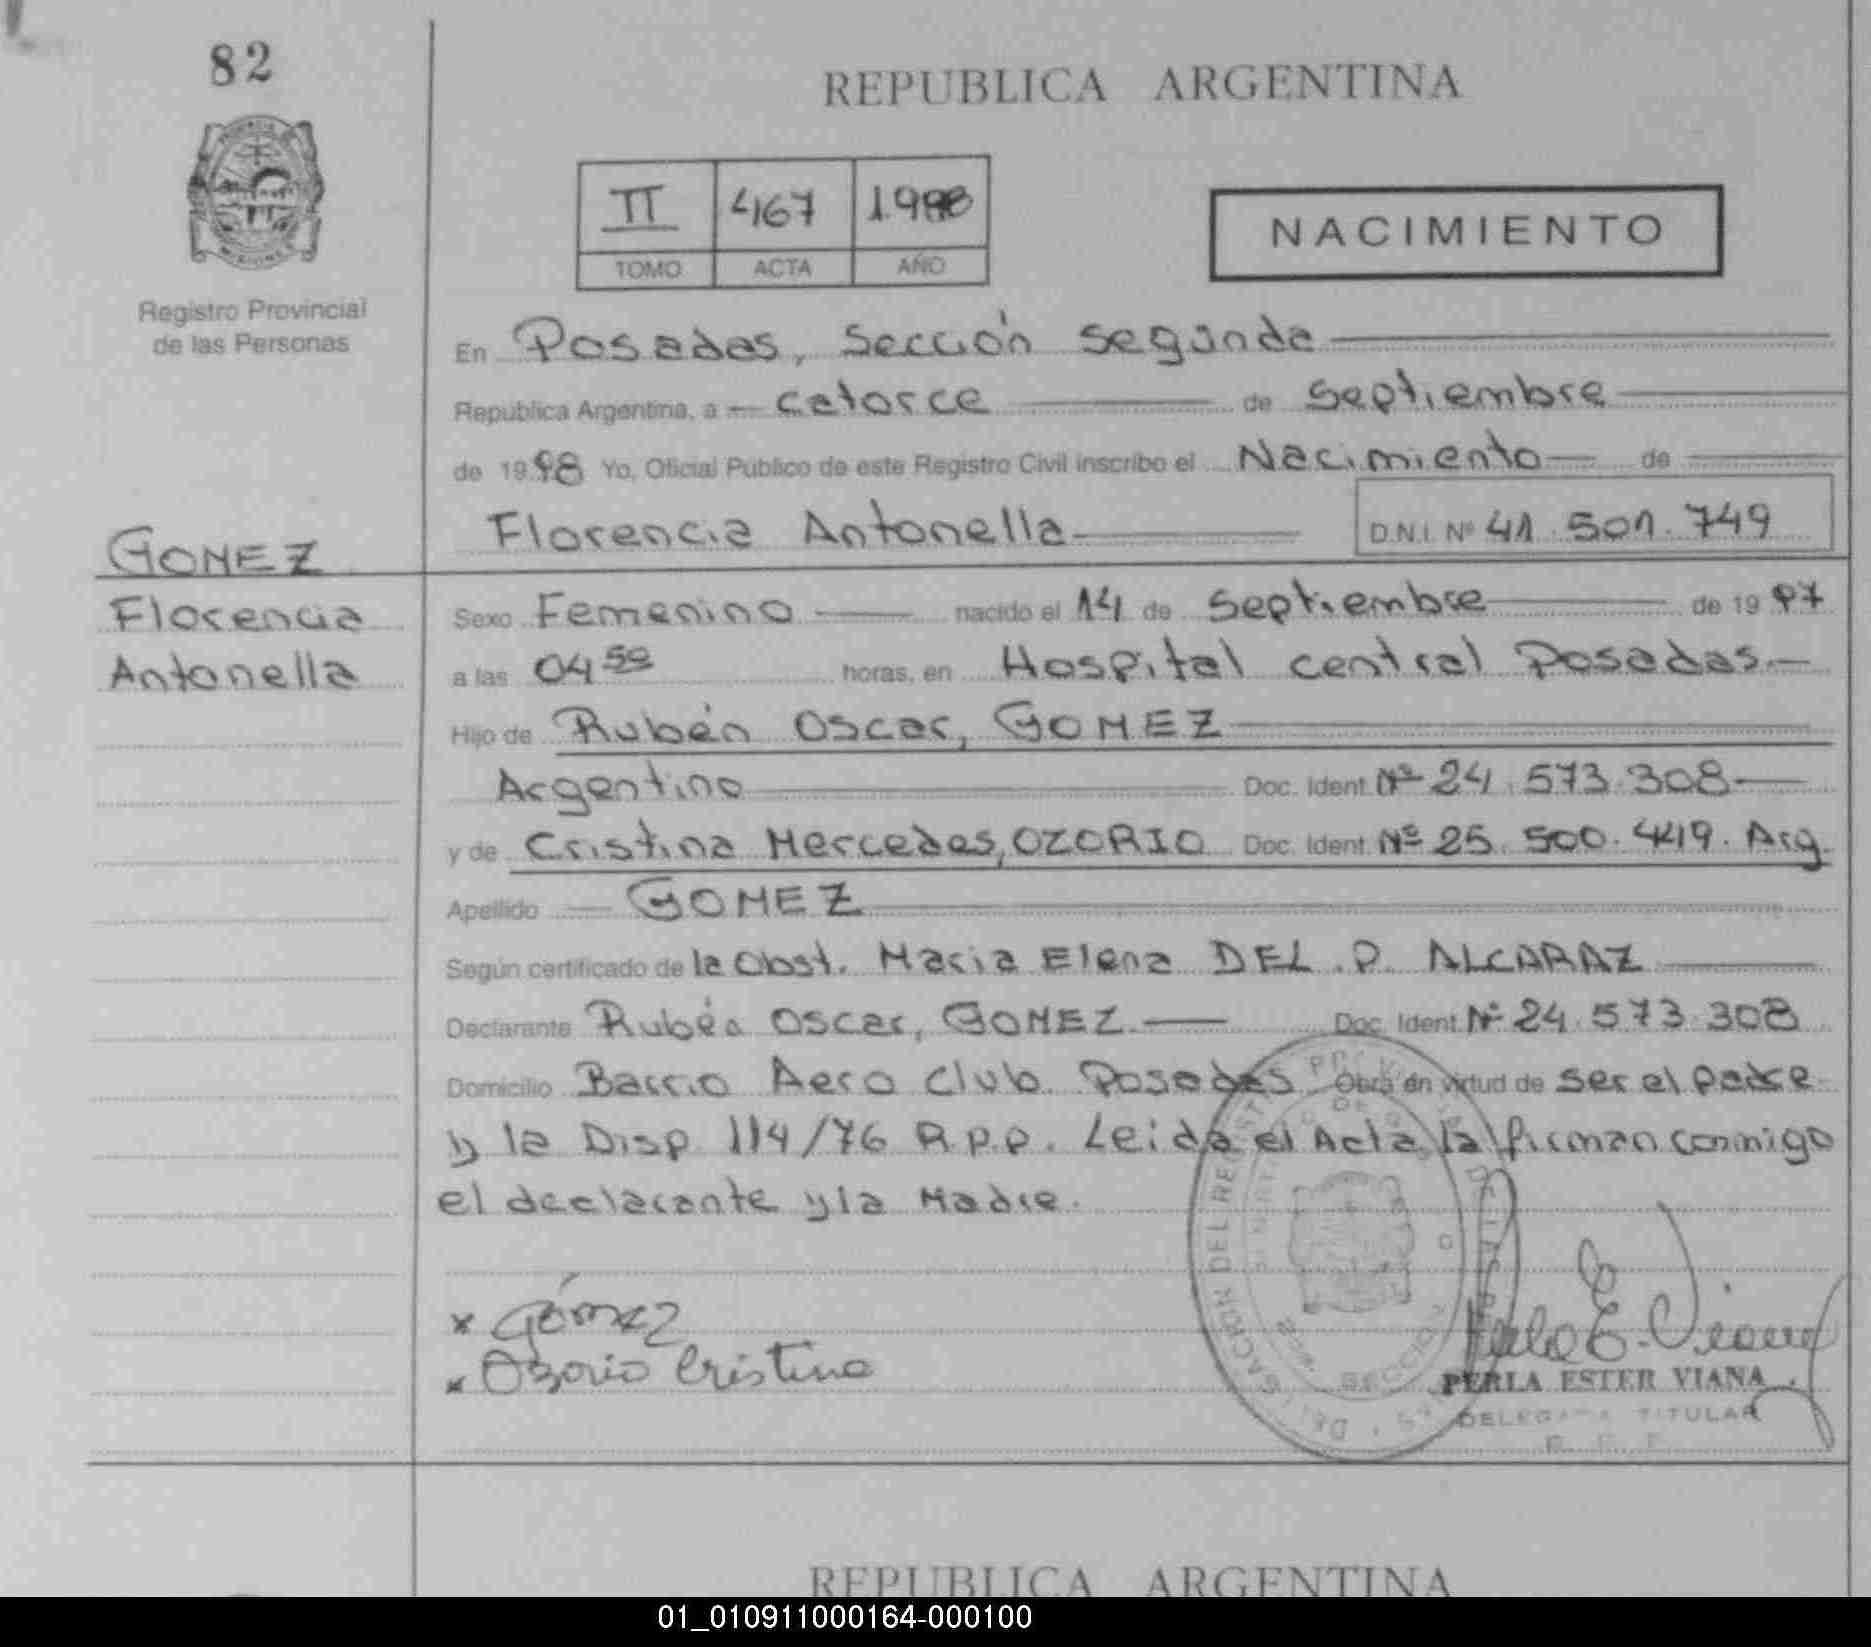 82
REPUBLICA ARGENTINA
II 467 1.998
TOMO ACTA AÑO
NACIMIENTO
Registro Provincial
de las Personas
En Posadas, Sección Segunda
Republica Argentina, a catorce de Septiembre
de 1998 Yo, Oficial Público de este Registro Civil inscribo el Nacimiento de
Florencia Antonella D.N.I. Nº 41.501.749
GOMEZ
Florencia
Antonella
Sexo Femenino nacido el 14 de Septiembre de 1997
a las 04 50 horas, en Hospital central Posadas.
Hijo de Rubén Oscar, GOMEZ
Argentino Doc. Ident. Nº 24.573.308
y de Cristina Mercedes, OZORIO Doc. Ident. Nº 25.500.449. Arg.
Apellido GOMEZ
Según certificado de la Obst. Maria Elena DEL P. ALCARAZ
Declarante Rubén Oscar, GOMEZ Doc. Ident. Nº 24.573.308
Domicilio Barrio Aero Club Posadas Obra en virtud de ser el padre
y la Disp 114/76 R.p.p. Leida el Acta la firman conmigo
el declarante y la Madre.
x Gómez
x Ozorio Cristina
Perla E. Viana
PERLA ESTER VIANA
DELEGADA TITULAR
REPUBLICA ARGENTINA
01_010911000164-000100